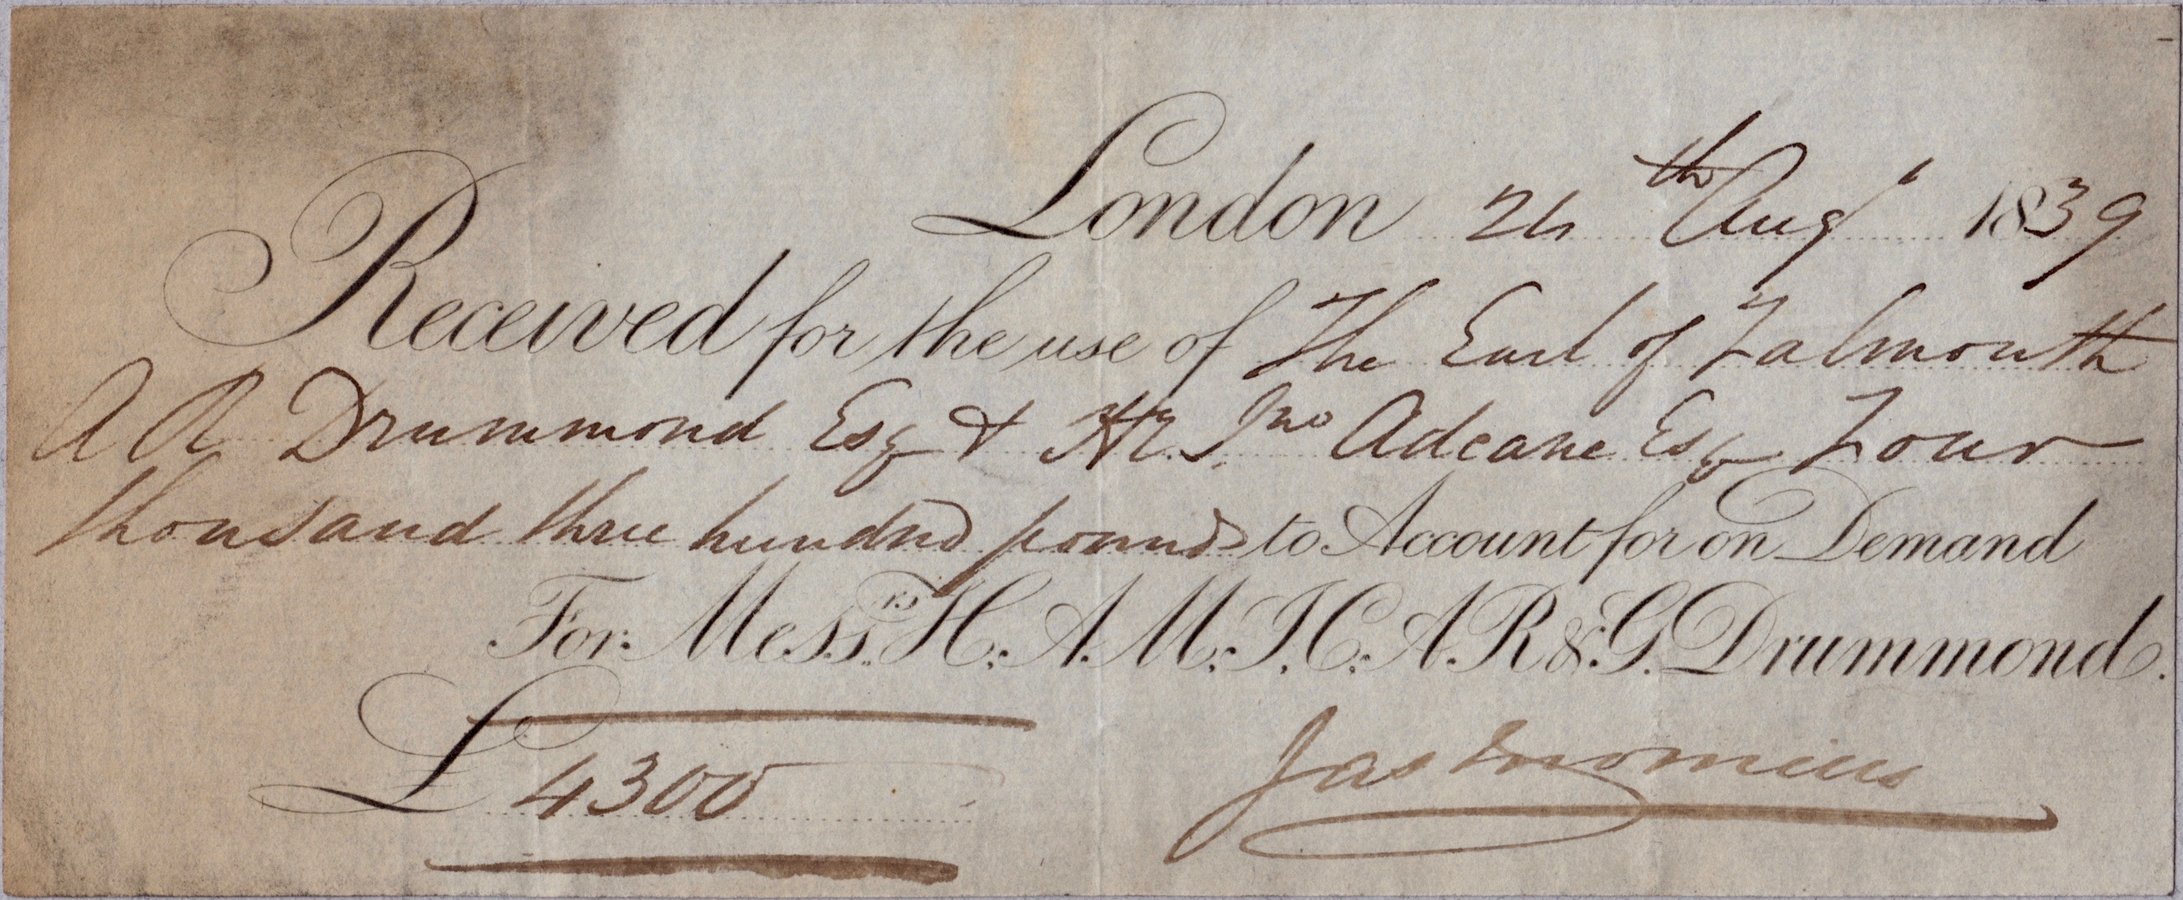 London 24th Augt 1839
Received for the use of The Earl of Falmouth
A R Drummond Esq & Jno Adeane Esq Four
thousand three hundred pounds to Account for on Demand
For Messrs H. A. M. J. C. A. R & G. Drummond.
£ 4300
Jas